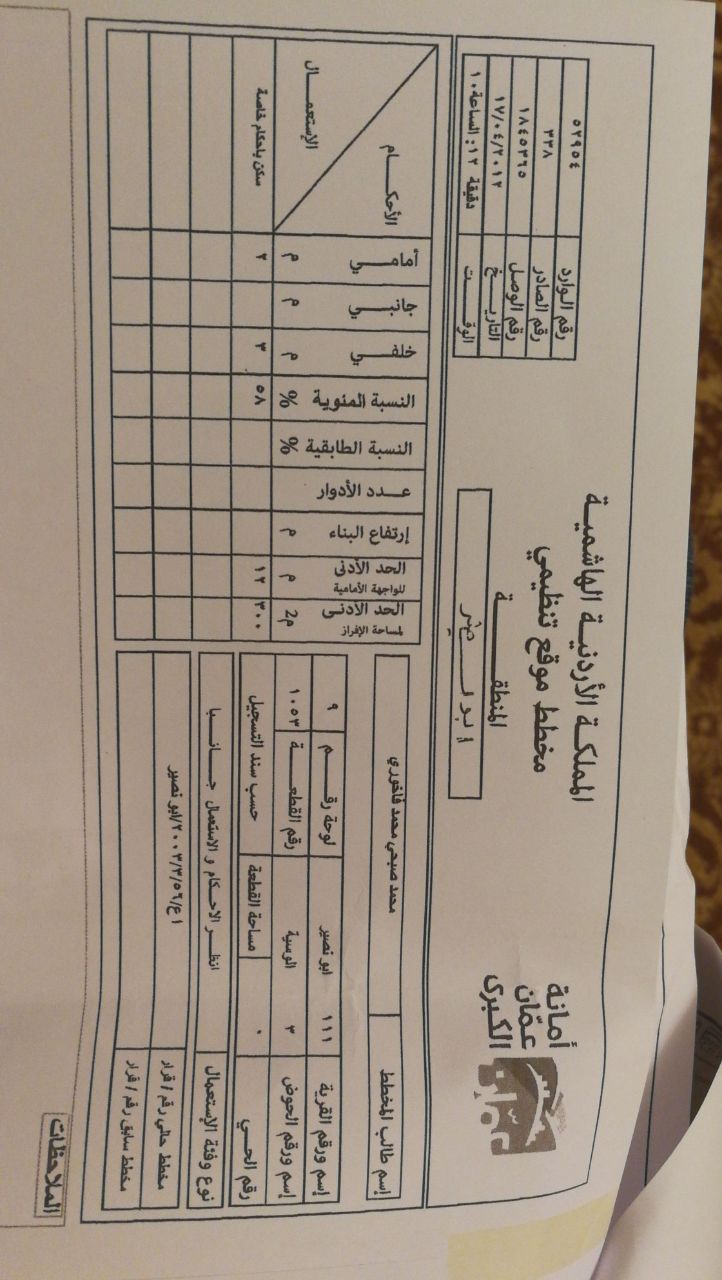 أمانة
عمّان
الكبرى
المملكة الأردنية الهاشمية
مخطط موقع تنظيمي
المنطقة
ابو نصير
رقم الوارد ٥٢٩٥٤
رقم الصادر ٣٣٨
رقم الوصل ١٨٤٥٣٦٥
التاريخ ١٧/٠٤/٢٠١٢
الوقت دقيقة ١٢: الساعة ١٠
إسم طالب المخطط محمد صبحي محمد فاخوري
إسم ورقم القرية ١١١ ابو نصير لوحة رقم ٩
إسم ورقم الحوض ٣ الوسية رقم القطعة ١٠٥٣
رقم الحي ٠ مساحة القطعة حسب سند التسجيل
نوع وفئة الإستعمال انظر الاحكام و الاستعمال جانبا
مخطط حالي رقم / قرار ا ع/٢٠٠٣/٣/٥٦/ابو نصير
مخطط سابق رقم / قرار
الأحكام أمامي جانبي خلفي النسبة المئوية النسبة الطابقية عدد الأدوار إرتفاع البناء الحد الأدنى للواجهة الأمامية الحد الأدنى لمساحة الإفراز
الإستعمال م م م % % م م م2
سكن باحكام خاصة ٣ ٣ ٥٨ ١٢ ٣٠٠
الملاحظات